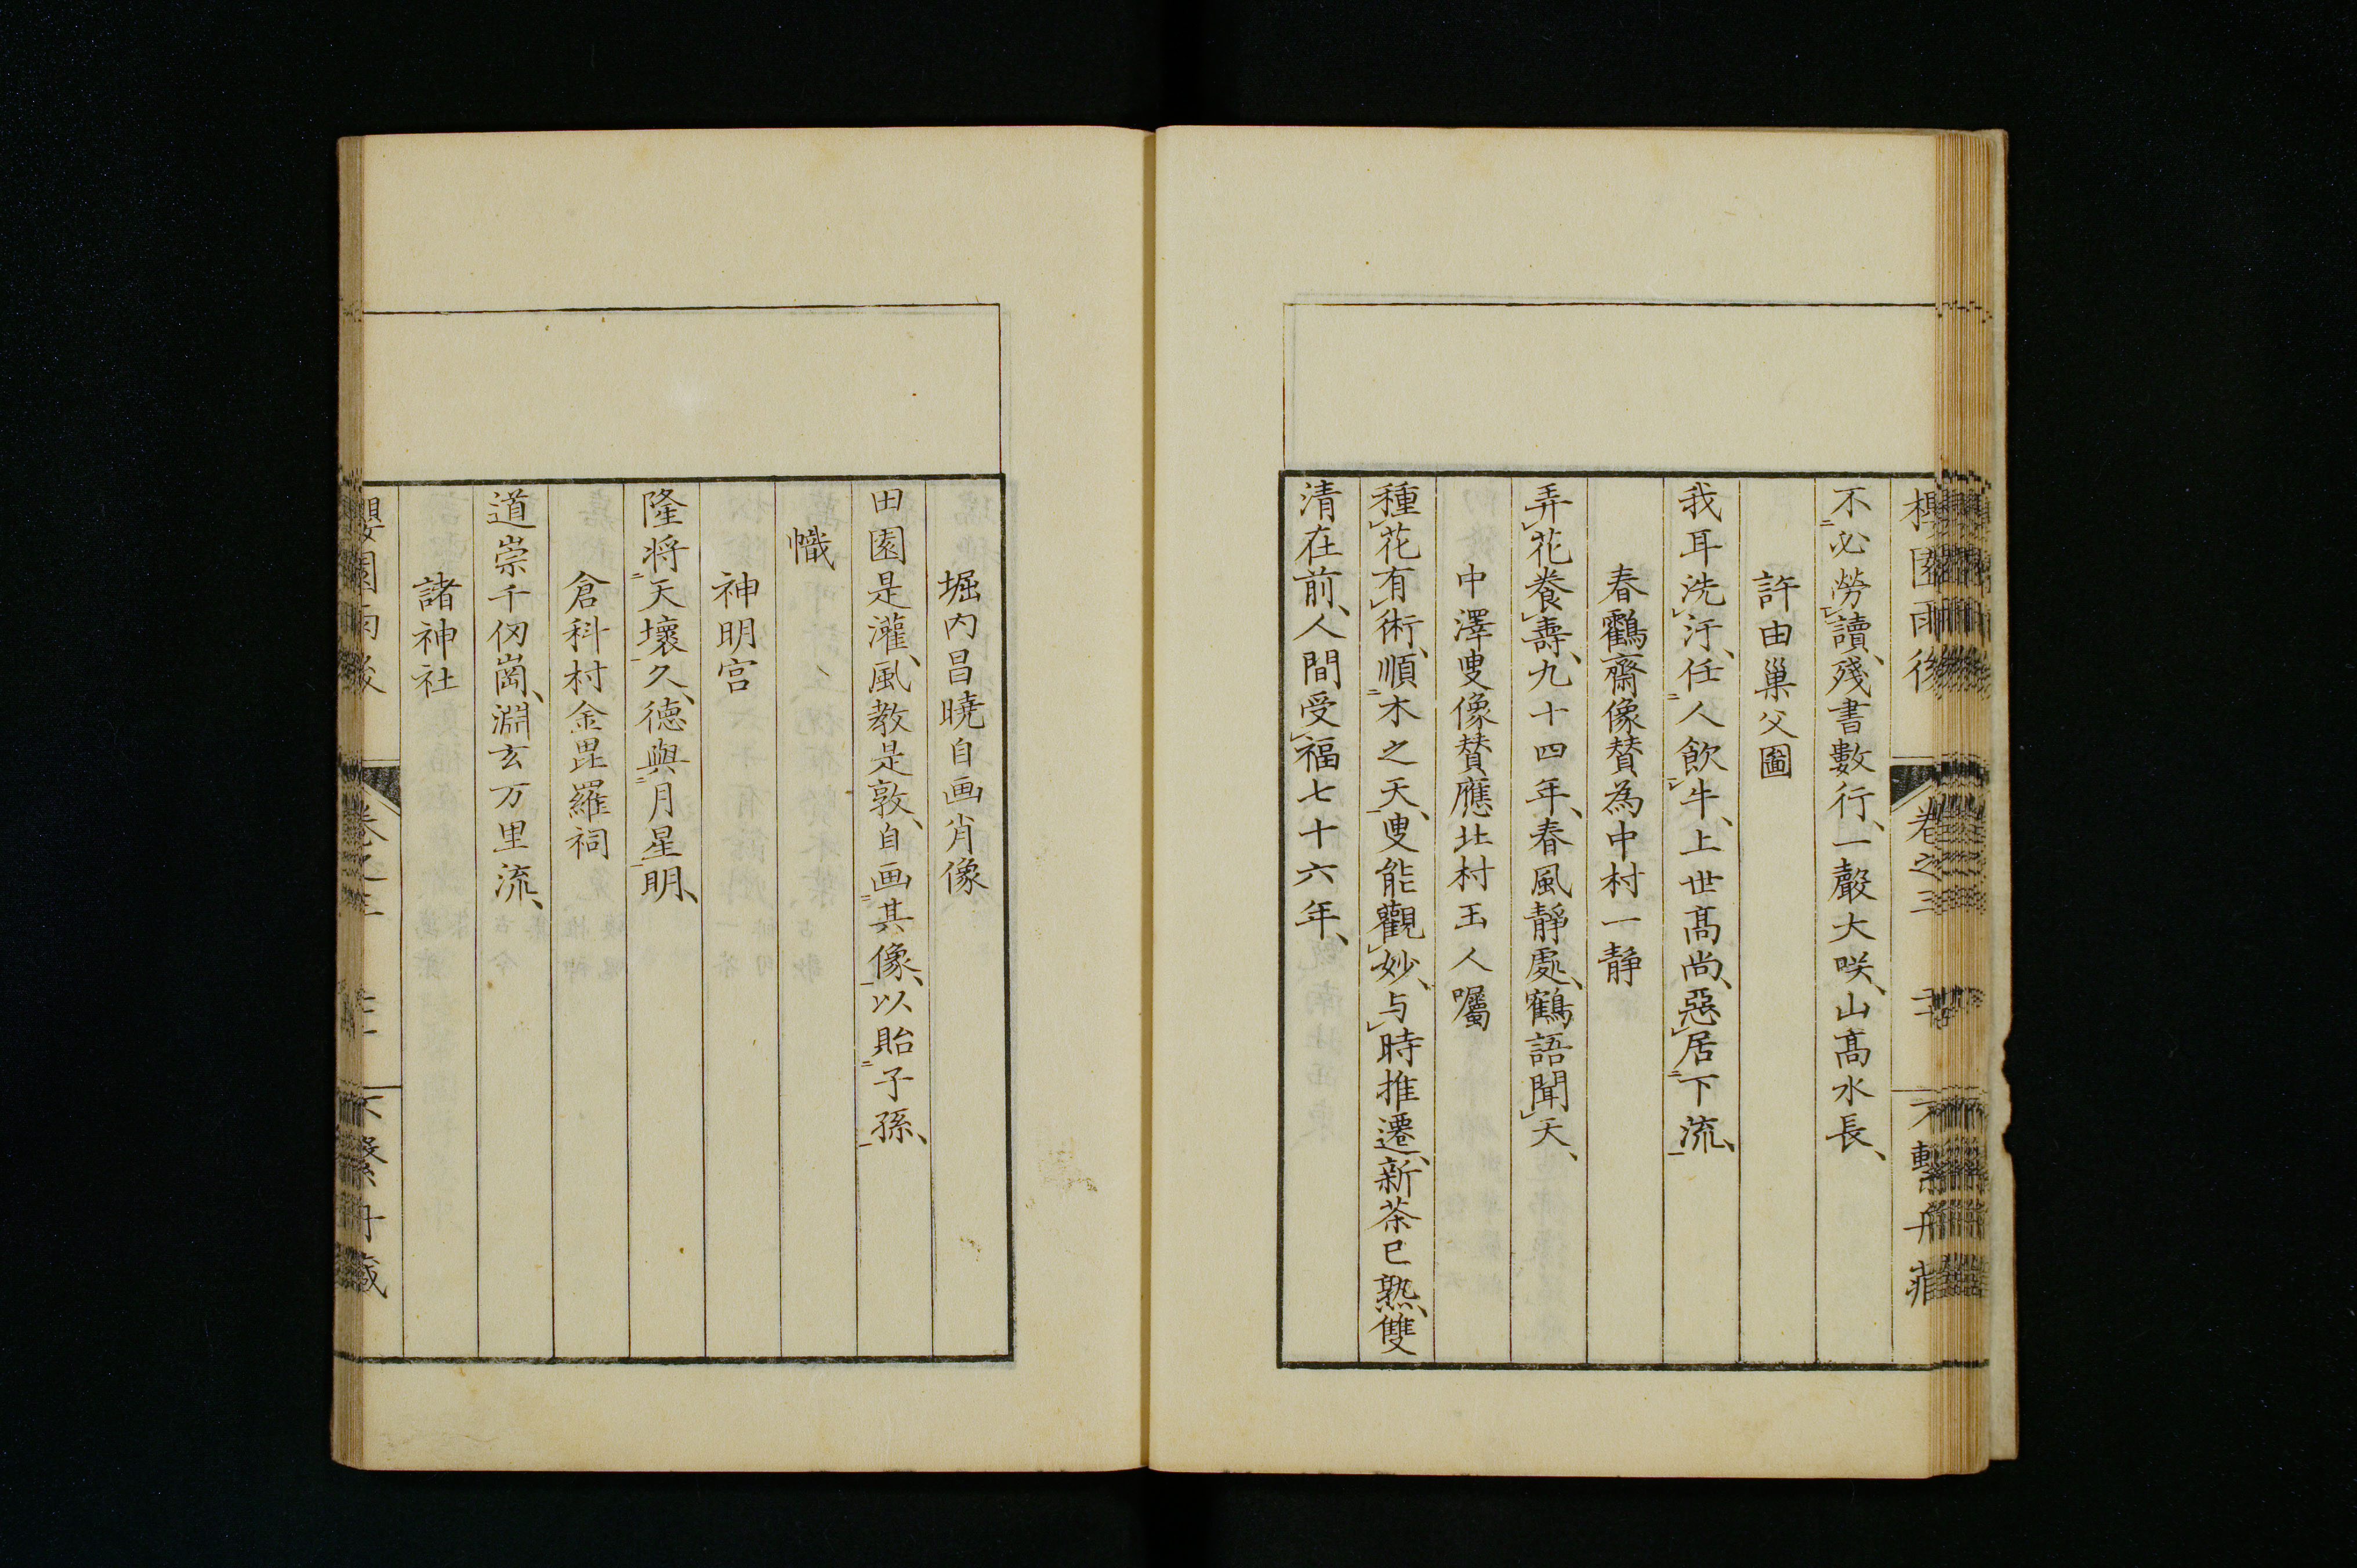 不必勞讀、殘書數行、一聲大咲、山髙水長、
許由巢父圖
我耳洗汙、任人飲牛、上世髙尚、惡居下流、
春鸖齋像賛為中村一静
弄花養壽、九十四年、春風靜處、鶴語聞天、
中澤叟像賛應北村玉人囑
種花有術、順木之天、叟能觀妙、与時推遷、新茶已熟、雙
清在前、人間受福七十六年、
堀内昌曉自画肖像
田園是灌、風教是敦、自画其像、以貽子孫、
幟
神明宮
隆将天壞久、德與月星明、
倉科村金毘羅祠
道崇千仭崗、淵玄万里流、
諸神社